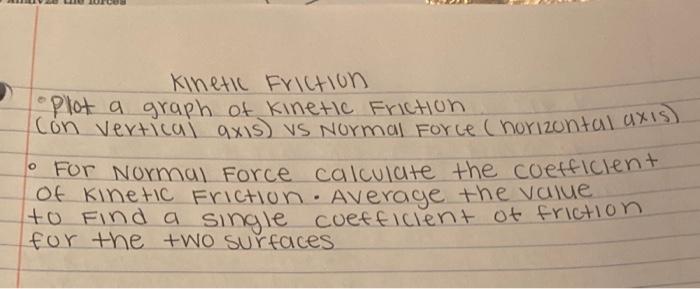 the forces
Kinetic Friction
• Plot a graph of Kinetic Friction
(on vertical axis) vs Normal Force (horizontal axis)
• For Normal Force calculate the coefficient
of Kinetic Friction. Average the value
to Find a single coefficient of friction
for the two surfaces